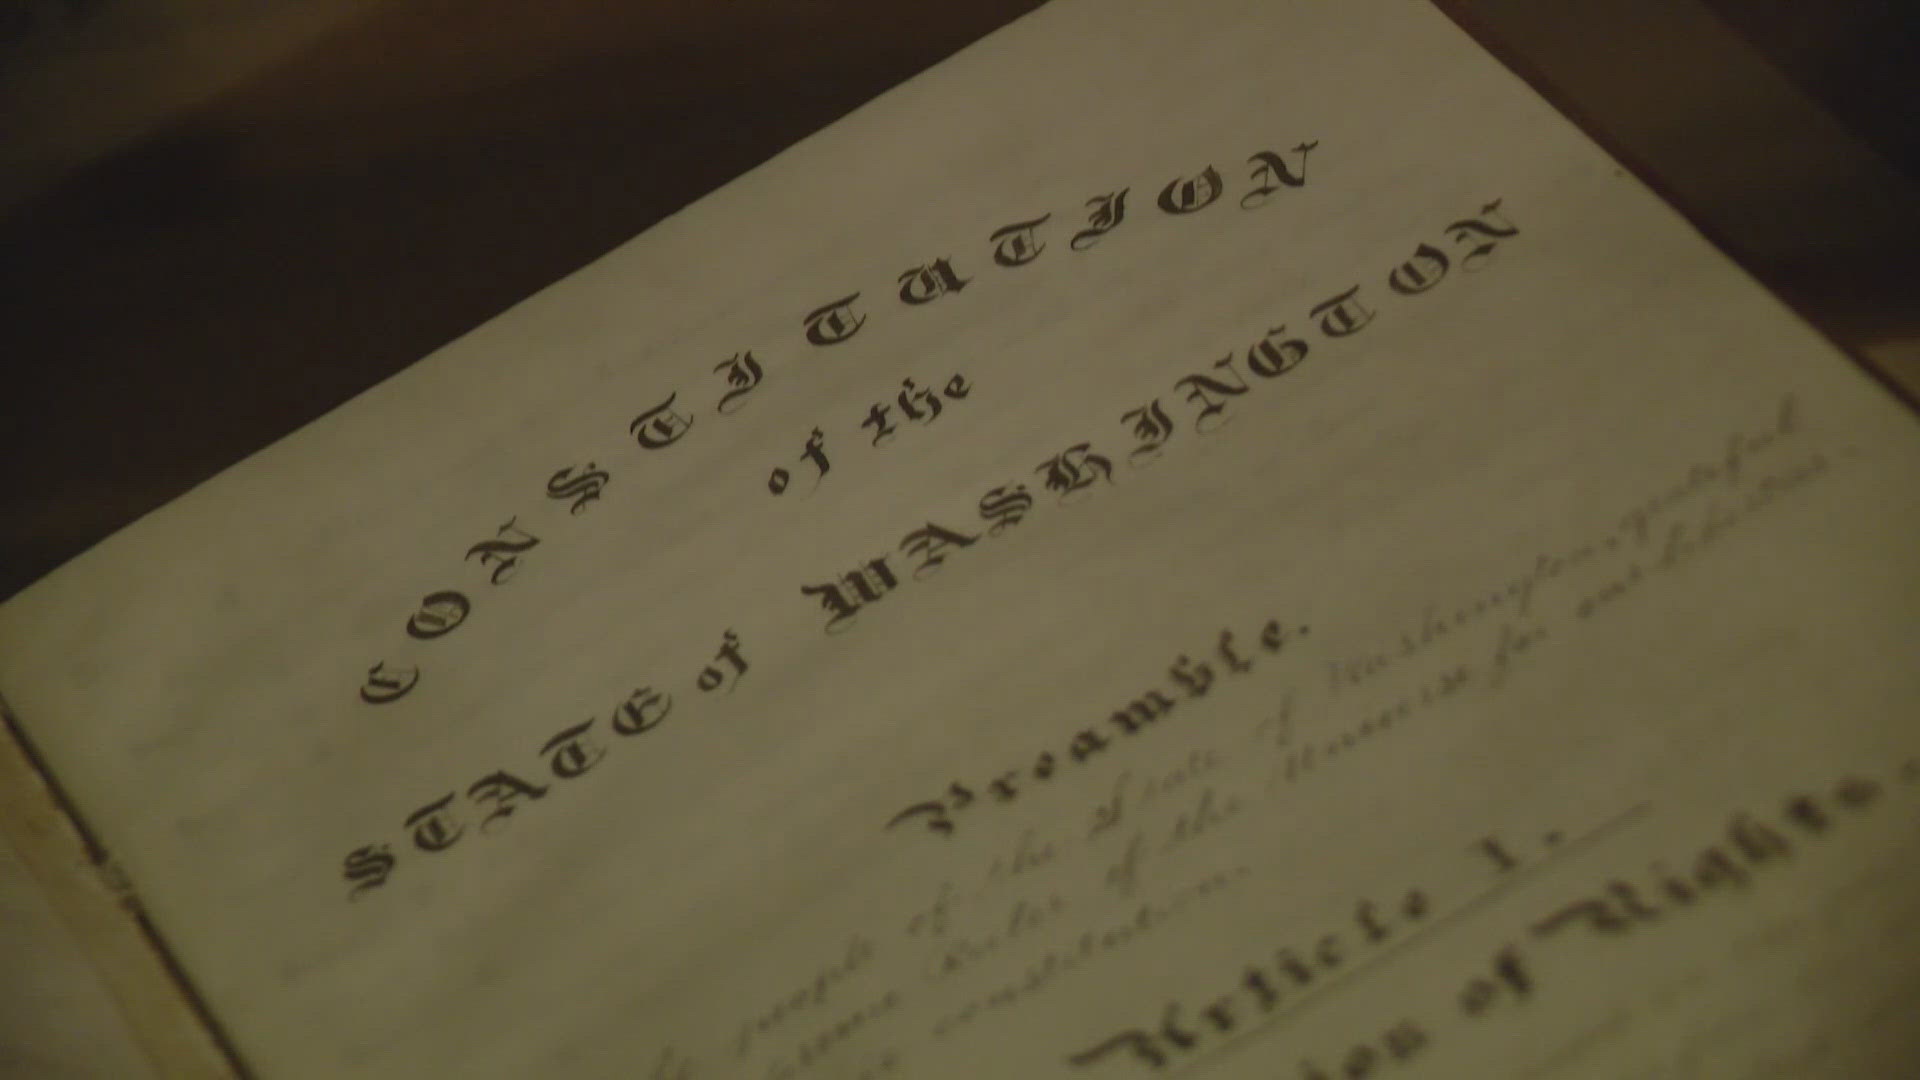 CONSTITUTION
of the
STATE of WASHINGTON
Preamble.
people of the State of Washington, grateful
Supreme Ruler of the Universe for our liberties
constitution.
Article I.
of Rights